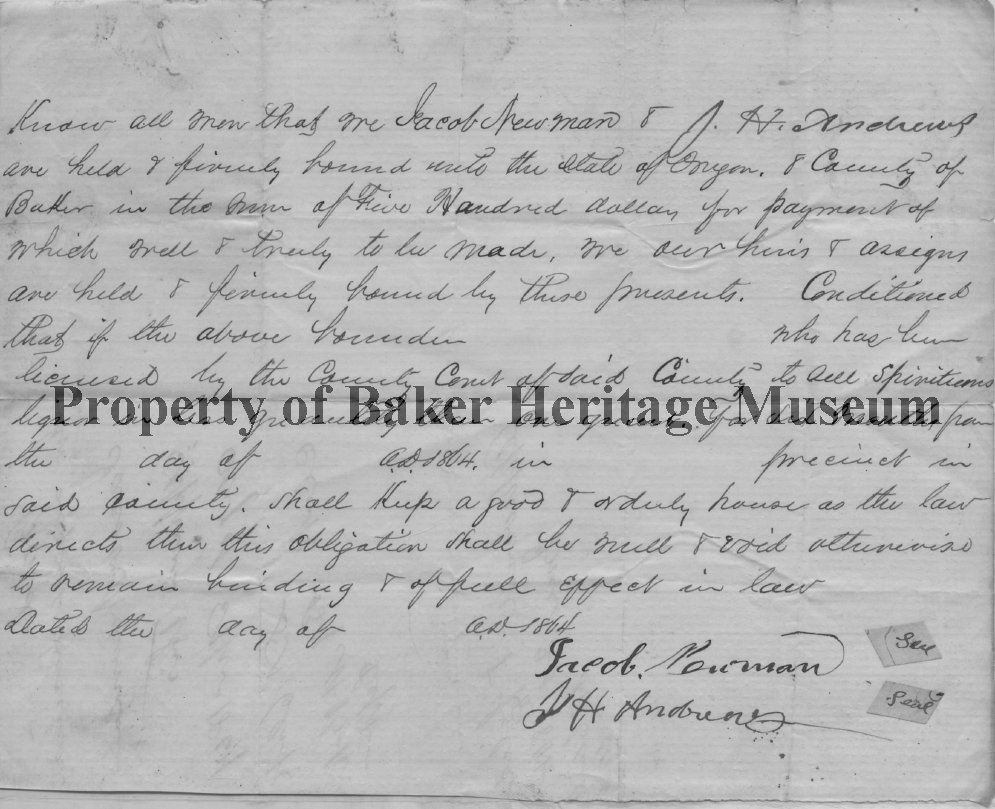 Know all men that we Jacob Newman & J. H. Andrews
are held & firmly bound unto the State of Oregon. & County of
Baker in the sum of Five Hundred dollars for payment of
which well & truly to be made, we our heirs & assigns
are held & firmly bound by these presents. Conditioned
that if the above bounden who has been
licensed by the County Court of said County to sell Spirituous
Property of Baker Heritage Museum
liquor in less quantity than one quart, for months from
the day of A.D. 1864. in precinct in
said county. shall keep a good & orderly house as the law
directs then this obligation shall be null & void otherwise
to remain binding & of full effect in law
Dated the day of A.D. 1864
Jacob. Newman Seal
J H Andrews Seal